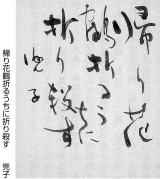 帰り花
鶴折るうちに
折り殺す
兜子
帰り花鶴折るうちに折り殺す　兜子